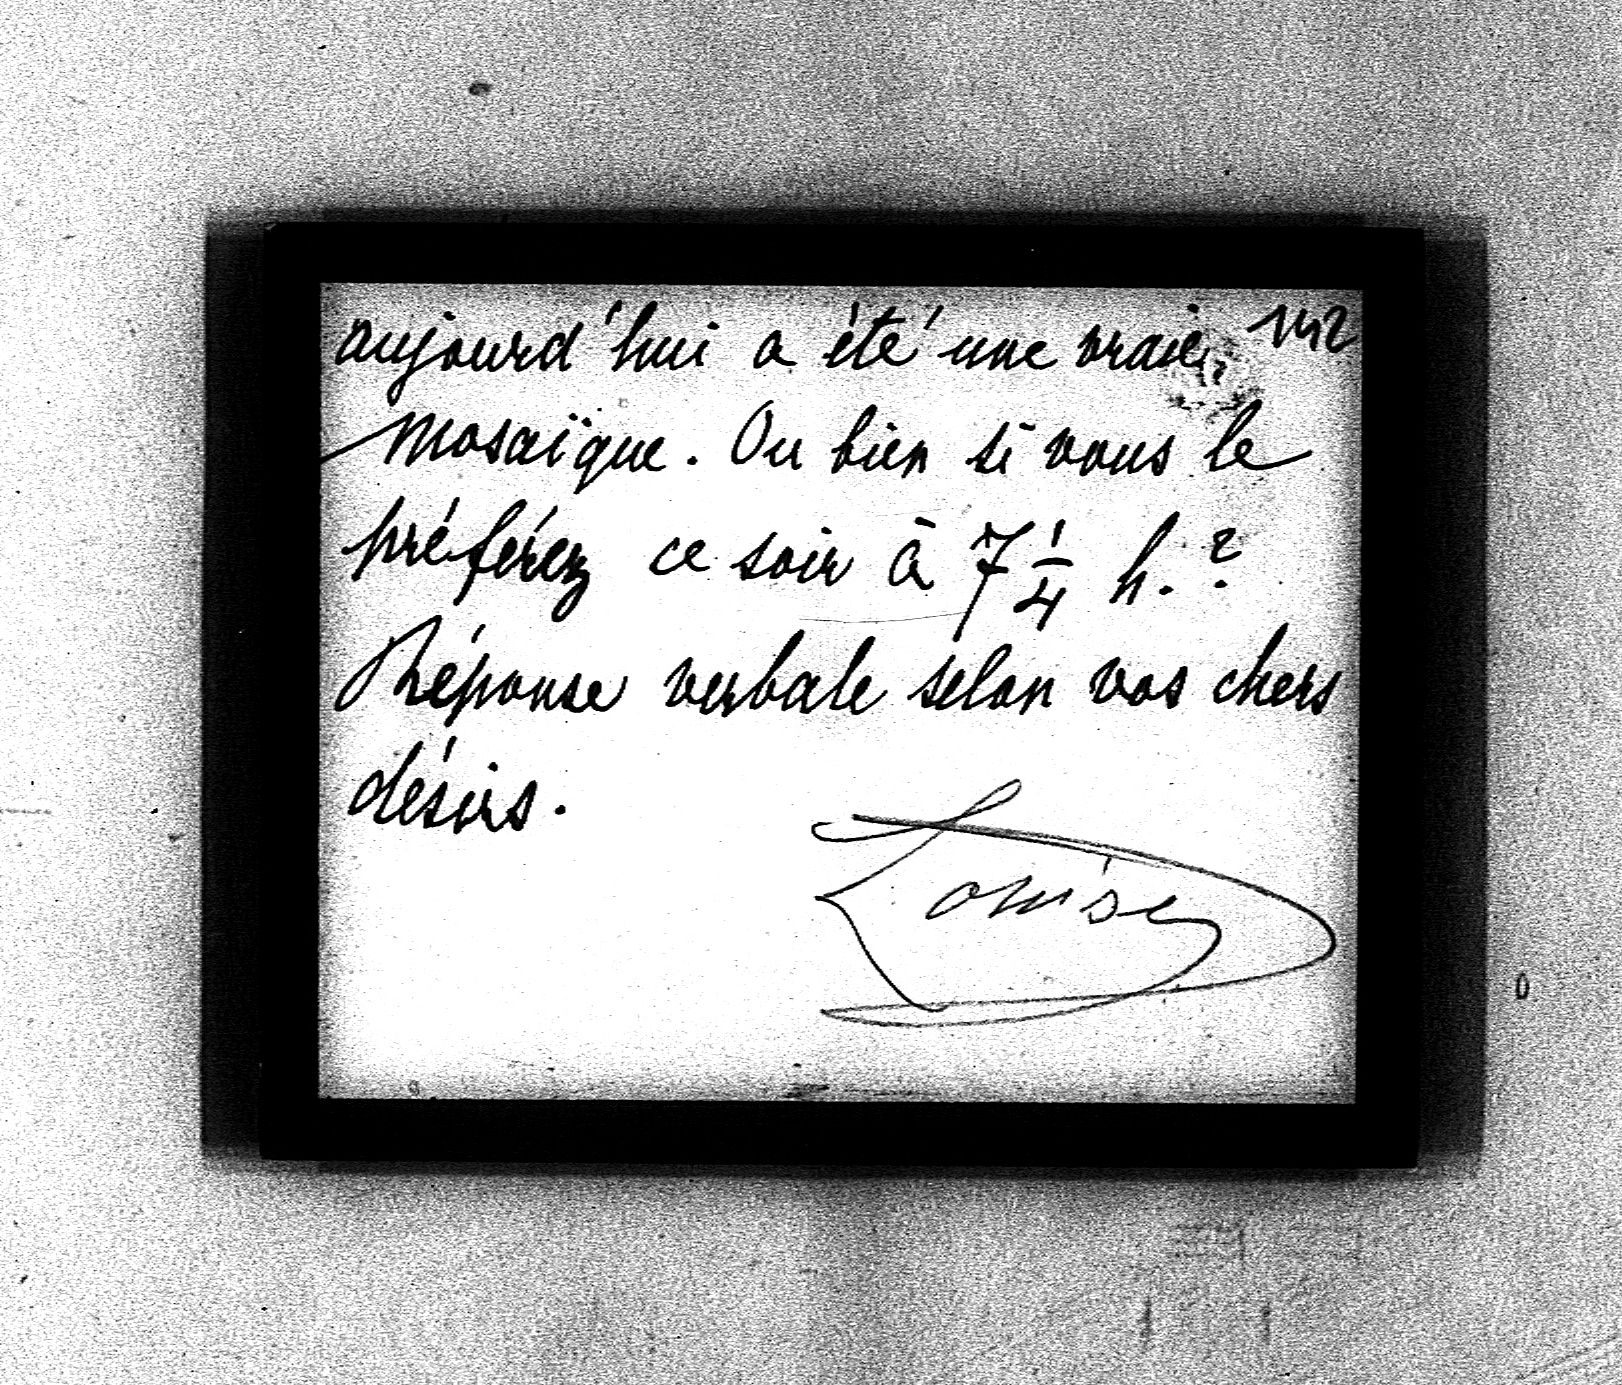 142
aujourd'hui a été une vraie
mosaïque. Ou bien si vous le
préférez ce soir à 7 1/4 h. ?
Réponse verbale selon vos chers
désirs.
Louise